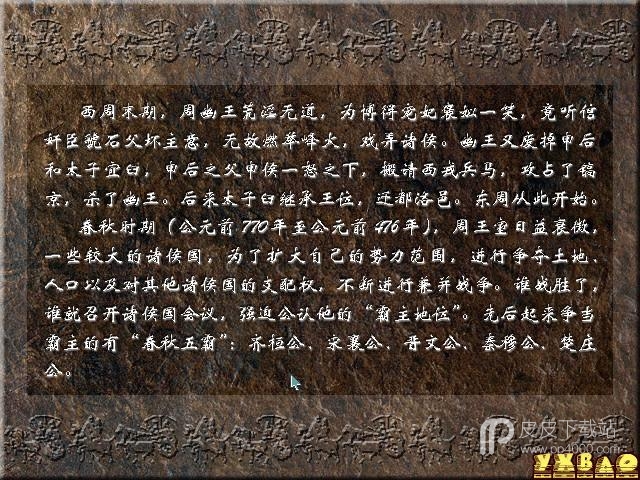 西周末期，周幽王荒淫无道，为博得宠妃褒姒一笑，竟听信
奸臣虢石父坏主意，无故燃举峰火，戏弄诸侯。幽王又废掉申后
和太子宜臼，申后之父申侯一怒之下，搬请西戎兵马，攻占了镐
京，杀了幽王。后来太子臼继承王位，迁都洛邑。东周从此开始。
春秋时期（公元前770年至公元前476年），周王室日益衰微，
一些较大的诸侯国，为了扩大自己的势力范围，进行争夺土地、
人口以及对其他诸侯国的支配权，不断进行兼并战争。谁战胜了，
谁就召开诸侯国会议，强迫公认他的“霸主地位”。先后起来争当
霸主的有“春秋五霸”：齐桓公、宋襄公、晋文公、秦穆公、楚庄
公。
皮皮下载站
www.pp4000.com
YXBAO